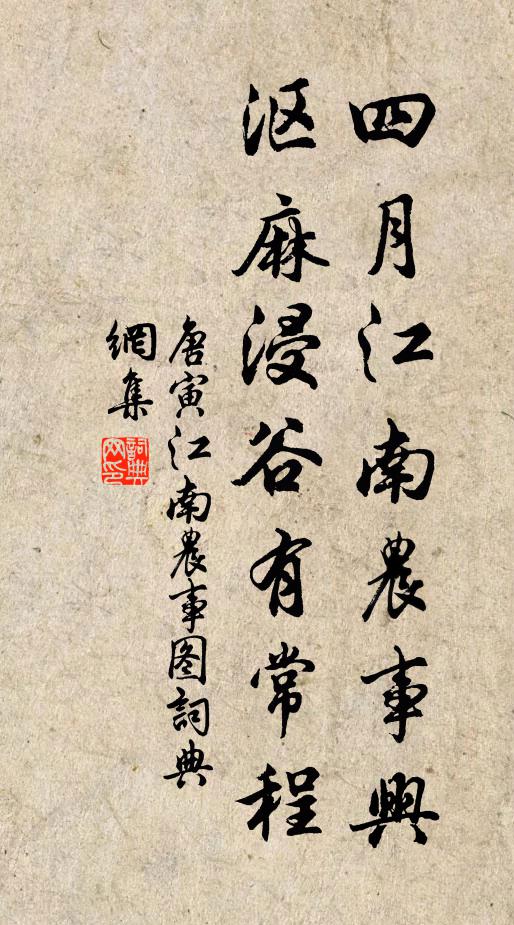 四月江南農事興
沤麻浸谷有常程
唐寅江南農事图詞典
網集
詞典网印